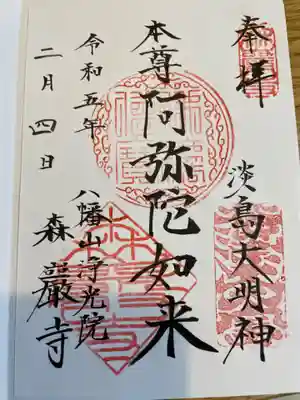 奉拝
淡島大明神
本尊
阿弥陀如来
令和五年
二月四日
八幡山浄光院
森巖寺